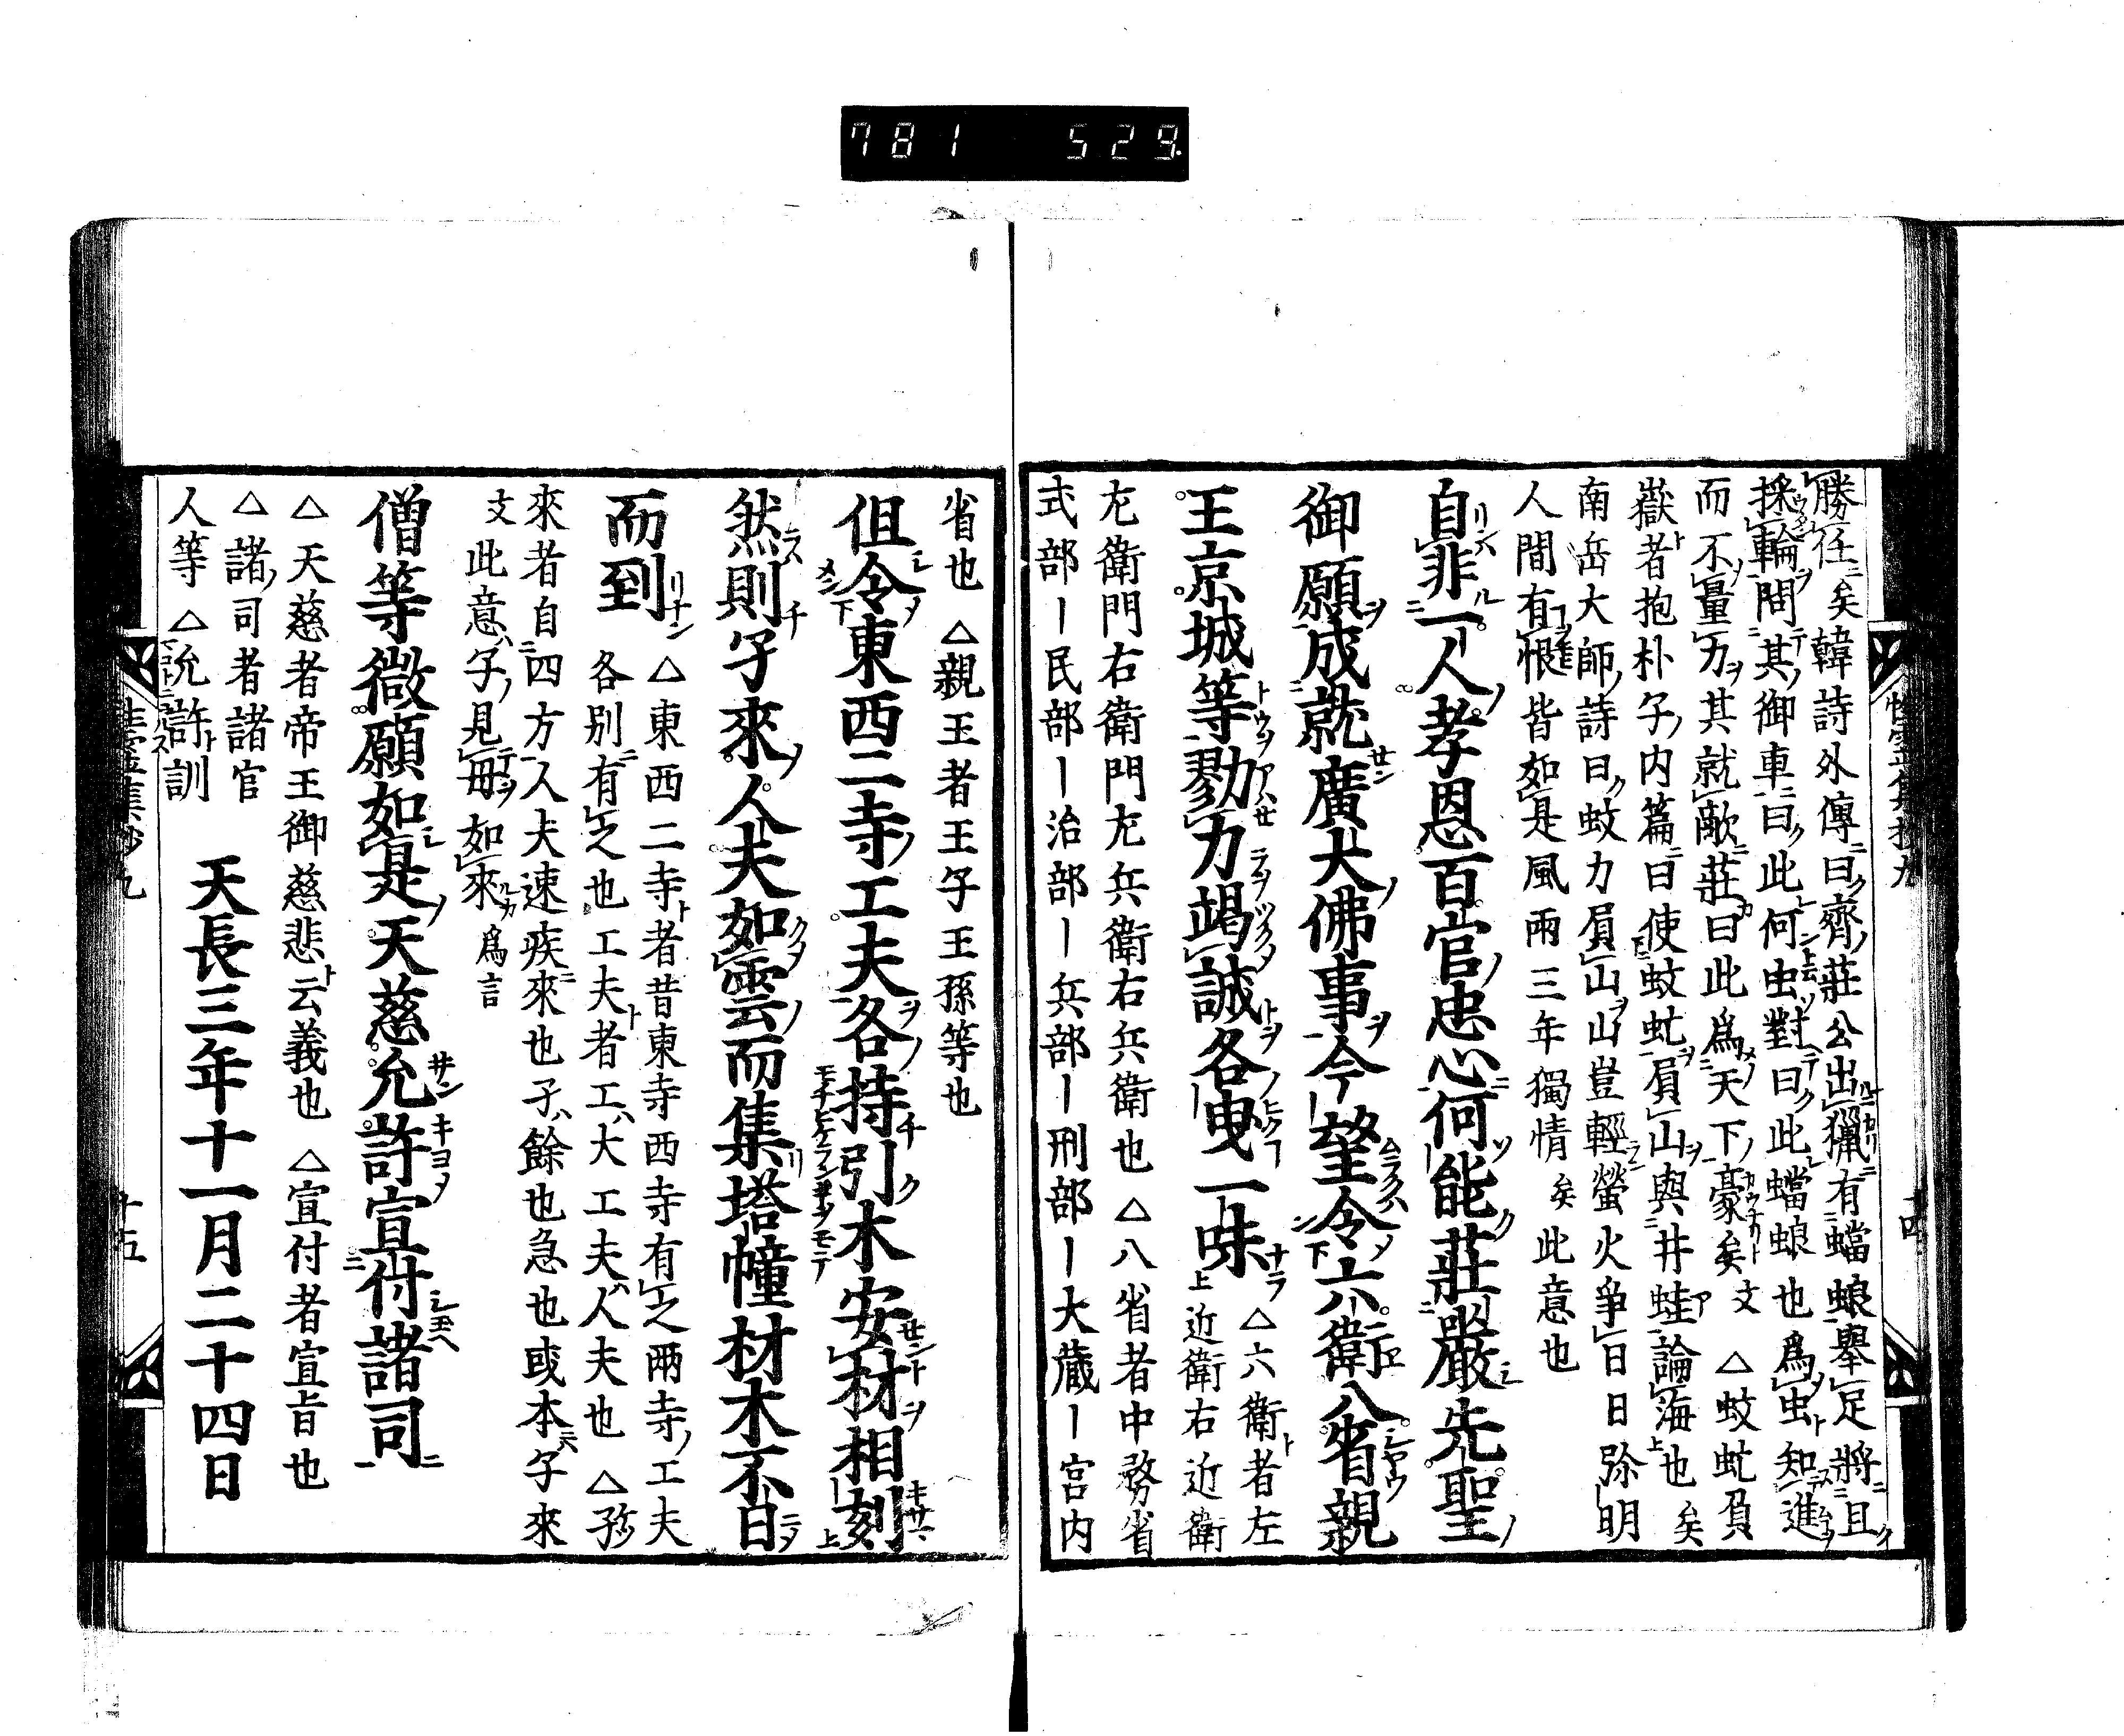 781 529.
勝任矣韓詩外傳曰齊莊公出獵有蟷蜋舉足將且
採輪問其御車曰此何虫對曰此蟷蜋也爲虫知進
而不量力其就敵莊曰此爲天下豪矣文 △蚊虻負
嶽者抱朴子内篇曰使蚊虻屓山與井蛙論海也矣
南岳大師詩曰蚊力屓山山豈輕螢火爭日日弥明
人間有恨皆如是風雨三年獨情矣此意也
自非一人孝恩百官忠心何能莊嚴先聖
御願成就廣大佛事今望令六衛八省親
王京城等勠力竭誠各曳一味 △六衛者左
近衛右近衛
左衛門右衛門左兵衛右兵衛也 △八省者中務省
式部ー民部ー治部ー兵部ー刑部ー大蔵ー宮内
省也 △親王者王子王孫等也
但令東西二寺工夫各持引木安材相刻
然則子來人夫如雲而集塔幢材木不日
而到 △東西二寺者昔東寺西寺有之兩寺工夫
各別有之也工夫者工大工夫人夫也 △子
來者自四方人夫速疾來也子餘也急也或本子來
文此意子見母如來爲言
僧等微願如是天慈允許宣付諸司
△天慈者帝王御慈悲云義也 △宣付者宣旨也
△諸司者諸官
人等 △允許訓
天長三年十一月二十四日
十四
十五